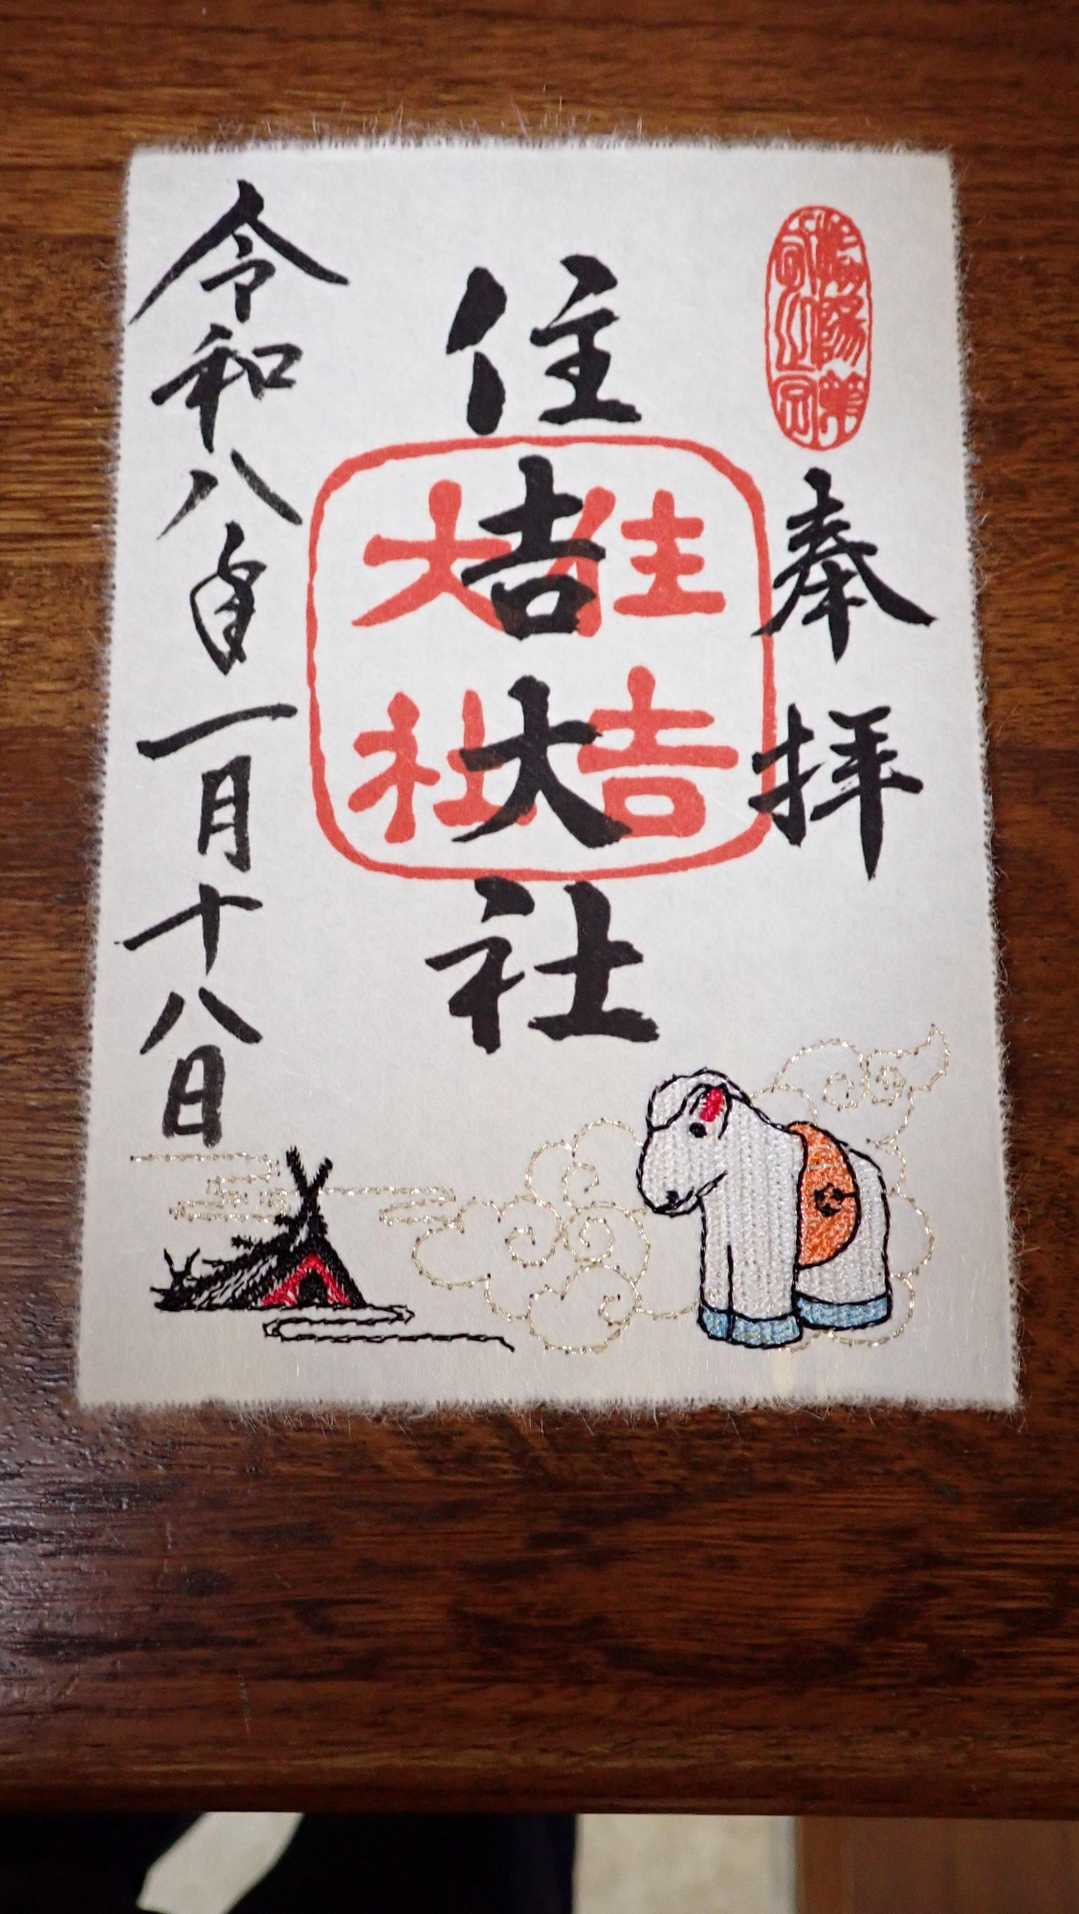 奉拝
住吉大社
住吉
大社
令和八年一月十八日